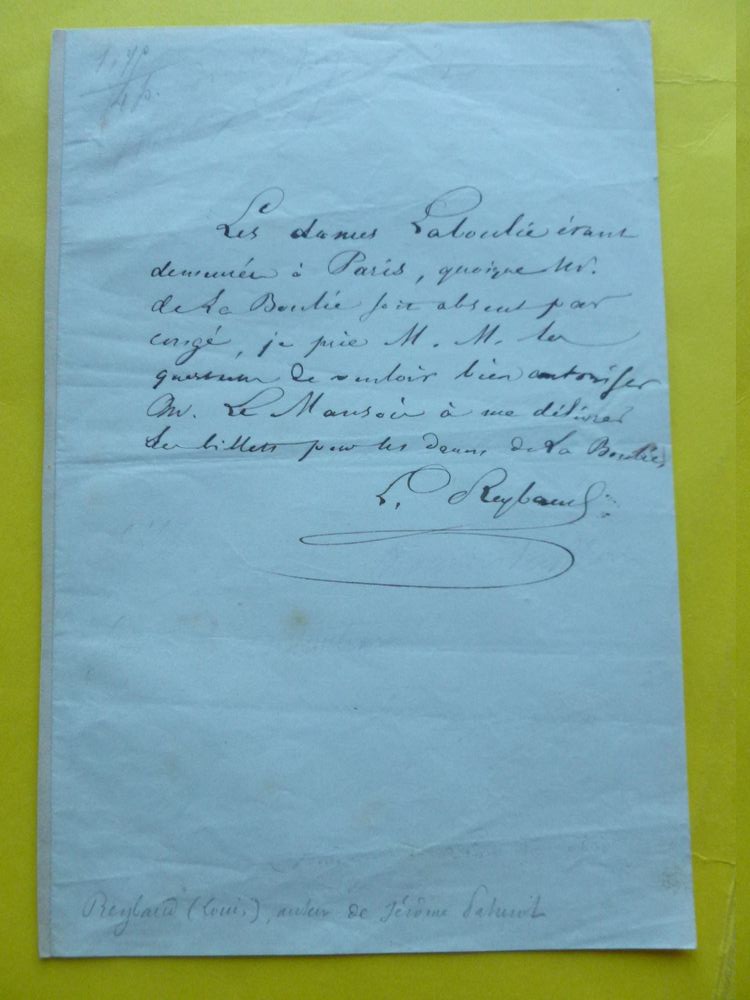 Les dames Laboulie étant
demeurées à Paris, quoique Mr.
de La Boulie soit absent par
congé, je prie M. M. les
questeurs de vouloir bien autoriser
Mr. Le Mansois à me délivrer
les billets pour les dames de La Boulie
L. Reybaud
Reybaud (Louis), auteur de Jérôme Paturot